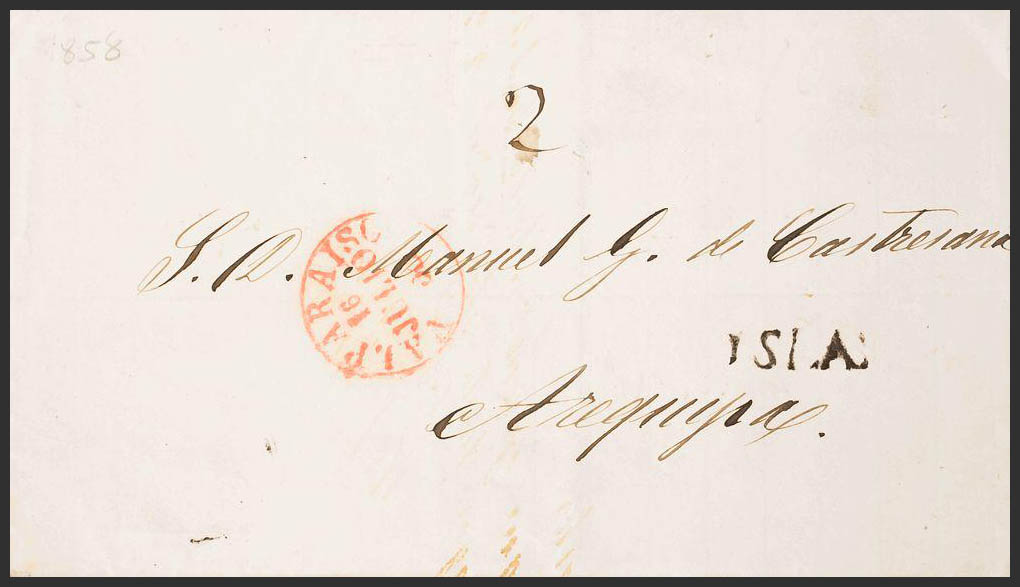 858
2
S. D. Manuel G. de Castresana
VALPARAISO
16
JULIO
ISLA.
Arequipa.